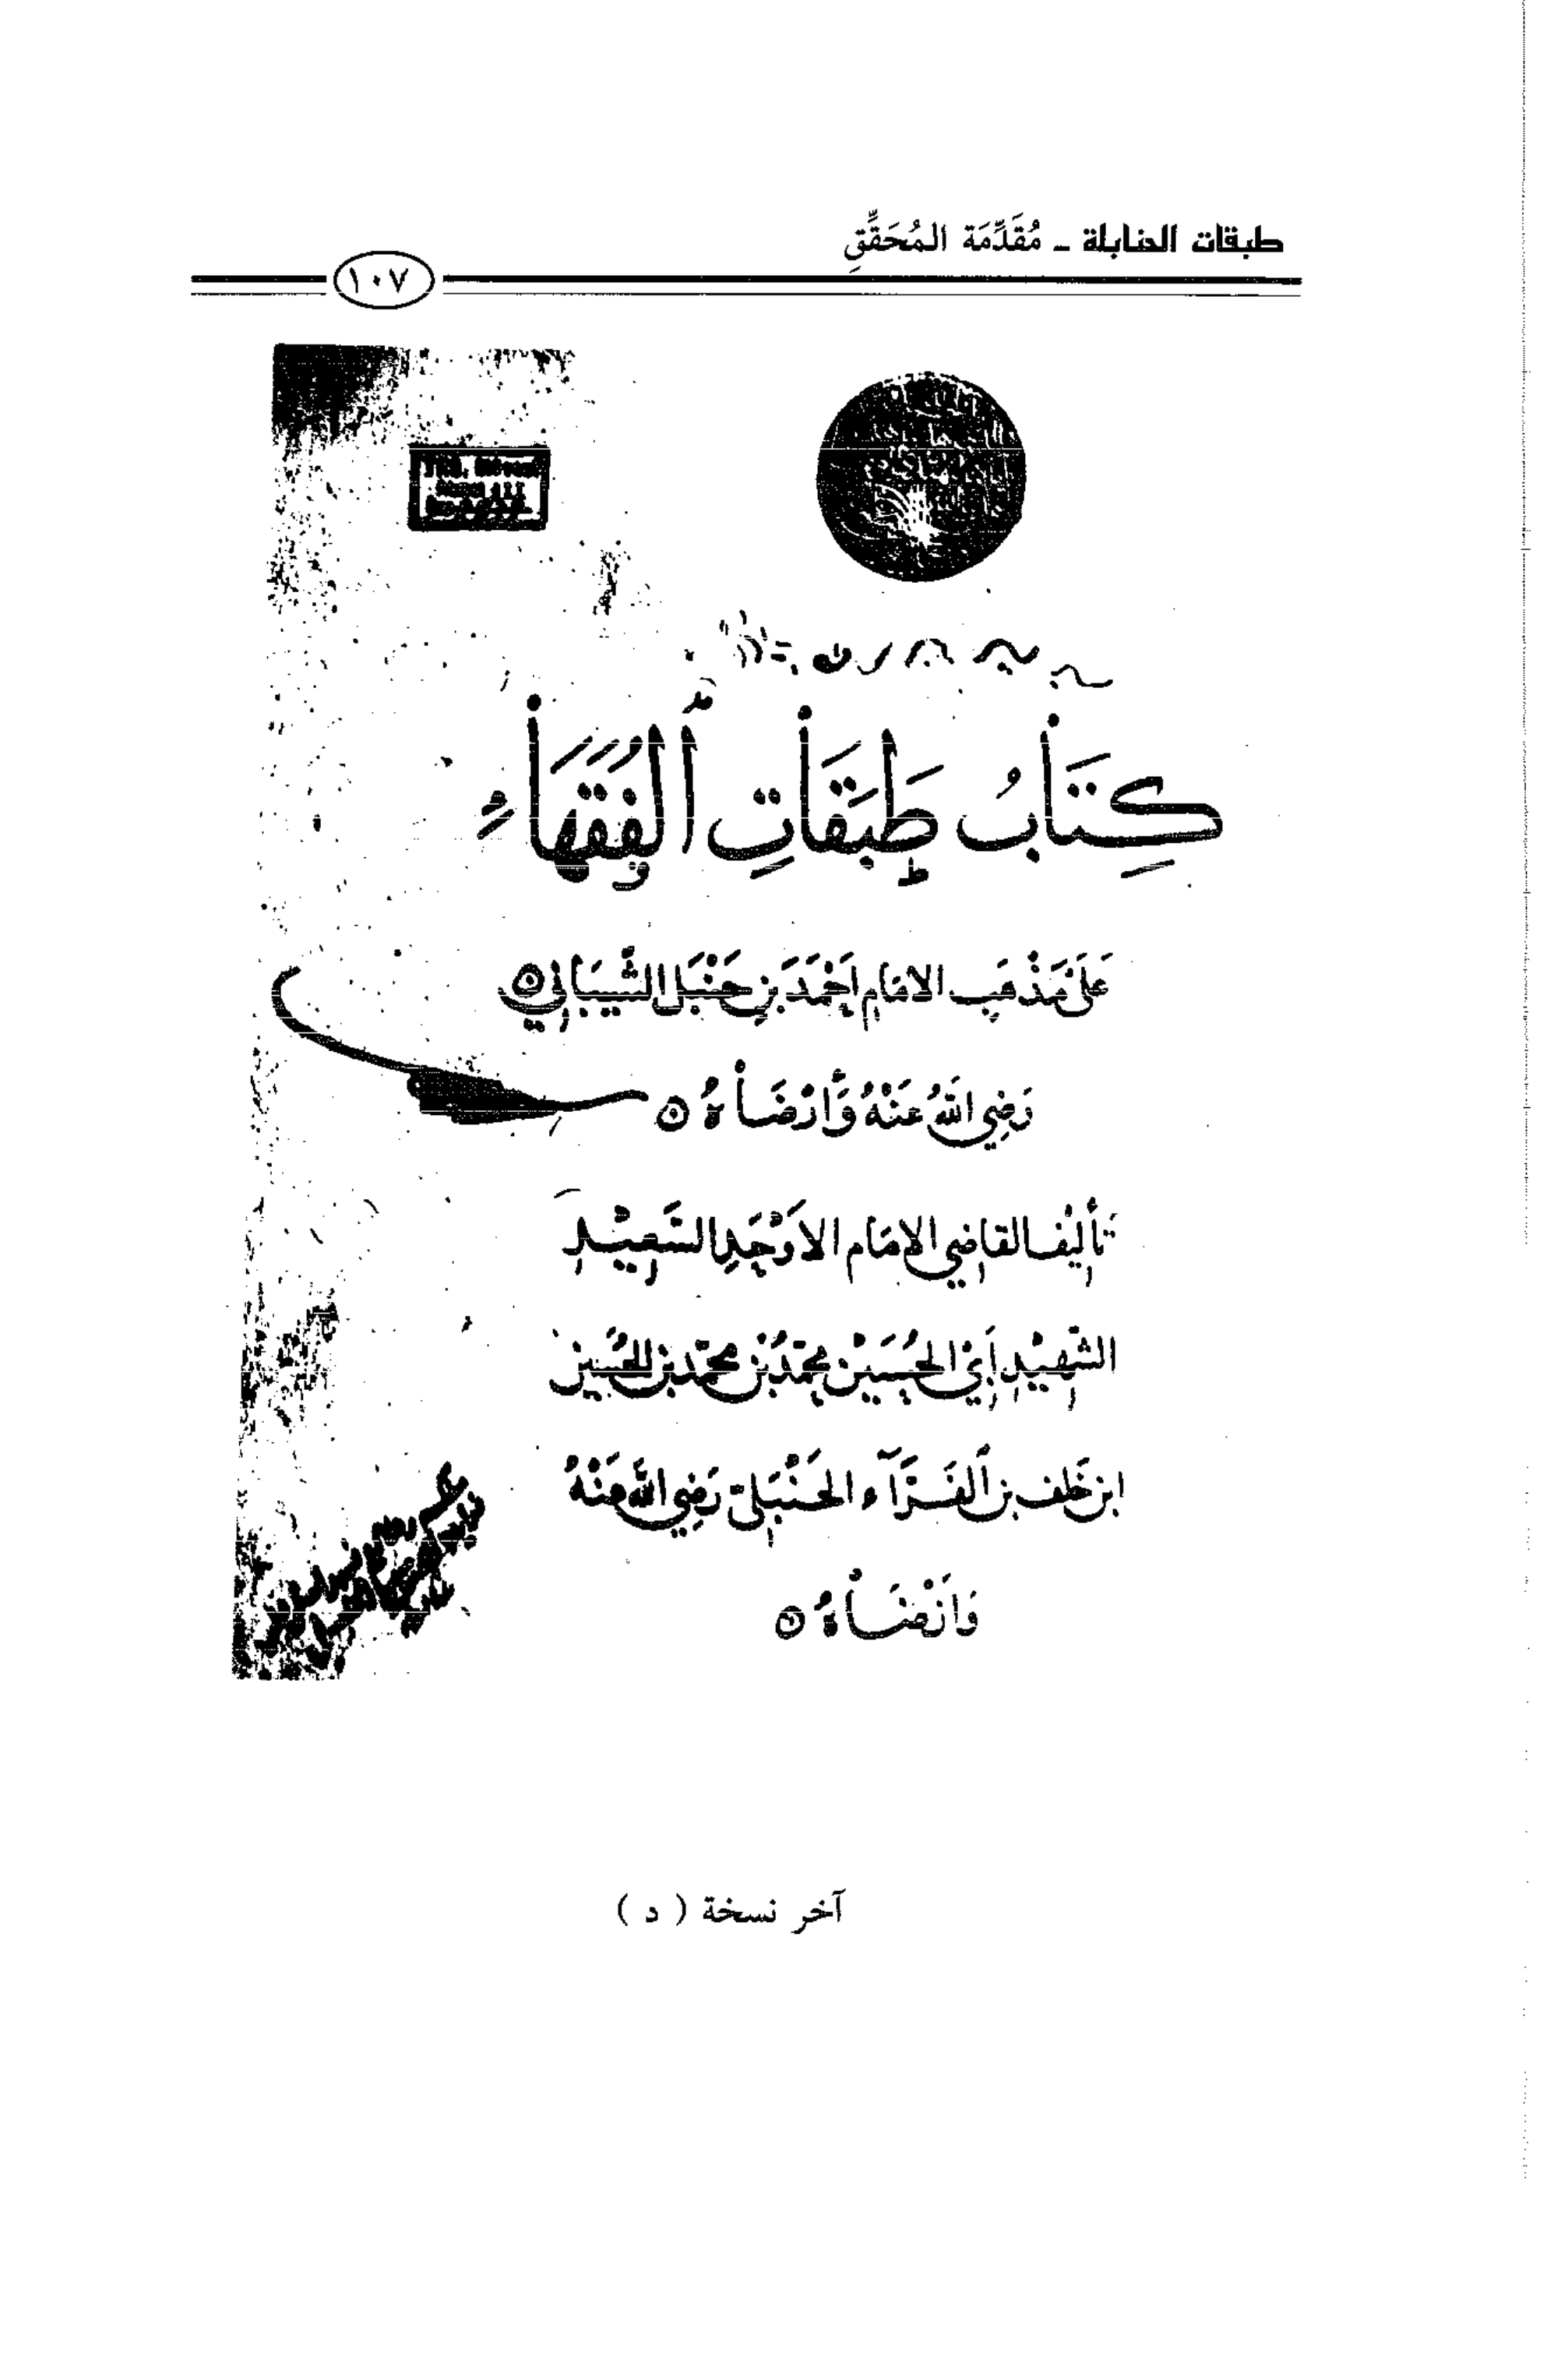 طبقات الحنابلة - مُقَدِّمَة المُحَقِّقِ
١٠٧
كِتَابُ طَبَقَاتِ الفُقَهَاءِ
عَلَى مَذْهَب الامَام اَحْمَدَ بنِ حَنْبَل الشَّيبَاني
رَضِي اللهُ عَنْهُ وَأرْضَاهُ
تأليف القاضي الامَام الاَوْحَدِ السَّعِيْدِ
الشهِيْدِ اَبي الحُسَيْن محمّد بْن محمّد بن الحُسَين
ابن خَلف بن الفَرَّآء الحَنْبَلي رَضِي الله عَنْهُ
وَارْضَاهُ
آخر نسخة ( د )